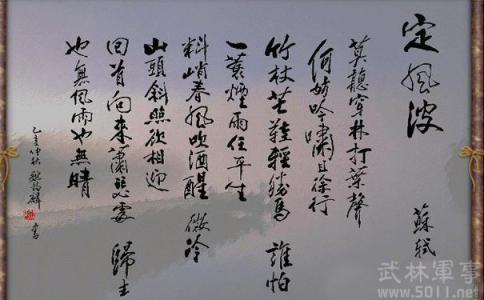 定風波 蘇軾
莫聽穿林打葉聲
何妨吟嘯且徐行
竹杖芒鞋輕勝馬 誰怕
一蓑煙雨任平生
料峭春風吹酒醒 微冷
山頭斜照欲相迎
回首向來蕭瑟處 歸去
也無風雨也無晴
乙亥仲秋 書
武林軍事
www.5011.net